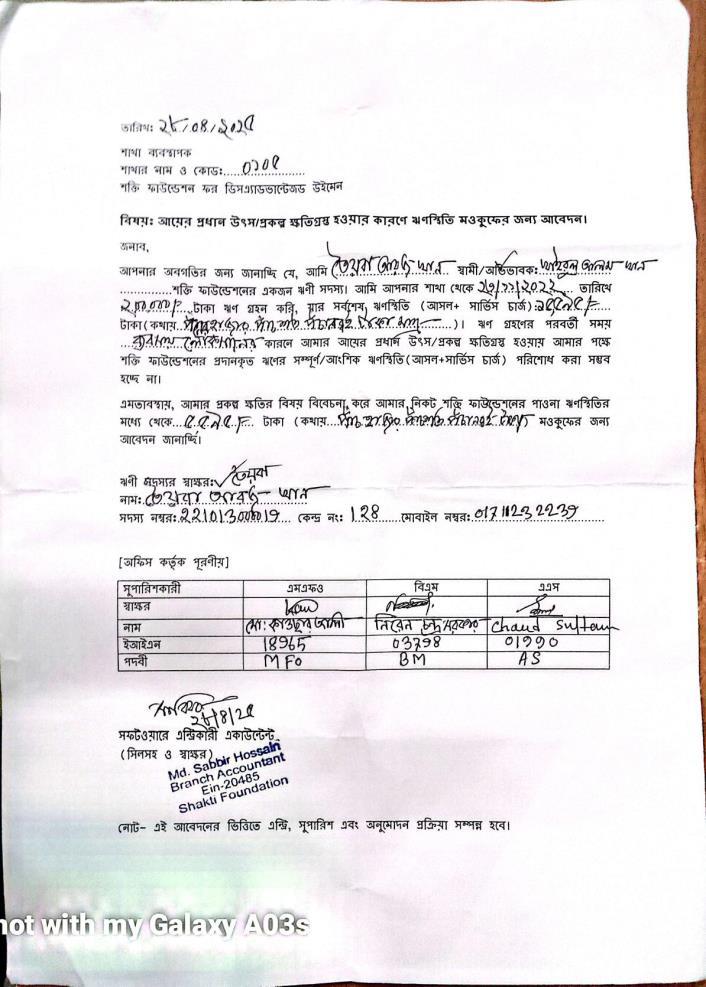 তারিখ: ২৮/০৪/২০২৫
শাখা ব্যবস্থাপক
শাখার নাম ও কোড:....০১০৫................
শক্তি ফাউন্ডেশন ফর ডিসএ্যাডভান্টেজড উইমেন
বিষয়: আয়ের প্রধান উৎস/প্রকল্প ক্ষতিগ্রস্থ হওয়ার কারণে ঋণস্থিতি মওকুফের জন্য আবেদন।
জনাব,
আপনার অবগতির জন্য জানাচ্ছি যে, আমি তৈয়বা আরজু খান স্বামী/অভিভাবক: খাইরুল আলম খান
................শক্তি ফাউন্ডেশনের একজন ঋণী সদস্য। আমি আপনার শাখা থেকে ২৩/১১/২০২২ তারিখে
টাকা ঋণ গ্রহন করি, যার সর্বশেষ ঋণস্থিতি (আসল+ সার্ভিস চার্জ)
টাকা (কথায় )। ঋণ গ্রহণের পরবর্তী সময়
ব্যবসায় লোকসানের কারনে আমার আয়ের প্রধান উৎস/প্রকল্প ক্ষতিগ্রস্থ হওয়ায় আমার পক্ষে
শক্তি ফাউন্ডেশনের প্রদানকৃত ঋণের সম্পূর্ণ/আংশিক ঋণস্থিতি (আসল+সার্ভিস চার্জ) পরিশোধ করা সম্ভব
হচ্ছে না।
এমতাবস্থায়, আমার প্রকল্প ক্ষতির বিষয় বিবেচনা করে আমার নিকট শক্তি ফাউন্ডেশনের পাওনা ঋণস্থিতির
মধ্যে থেকে...৫৫৯৫/=.. টাকা (কথায়...পাঁচ হাজার পাঁচশত পঁচানব্বই টাকা) মওকুফের জন্য
আবেদন জানাচ্ছি।
ঋণী সদস্যর স্বাক্ষর: তৈয়বা
নাম: তৈয়বা আরজু খান
সদস্য নম্বর: কেন্দ্র নং: 128 মোবাইল নম্বর: 01711232239
[অফিস কর্তৃক পূরণীয়]
সুপারিশকারী এমএফও বিএম এএস
স্বাক্ষর
নাম মো: কাওছার আলী নিরেন চন্দ্র সরকার Chand Sultan
ইআইএন 18965 03798 01990
পদবী MFO BM AS
২৮/৪/২৫
সফটওয়ারে এন্ট্রিকারী একাউন্টেন্ট
(সিলসহ ও স্বাক্ষর)
Md. Sabbir Hossain
Branch Accountant
Ein-20485
Shakti Foundation
নোট- এই আবেদনের ভিত্তিতে এন্ট্রি, সুপারিশ এবং অনুমোদন প্রক্রিয়া সম্পন্ন হবে।
hot with my Galaxy A03s